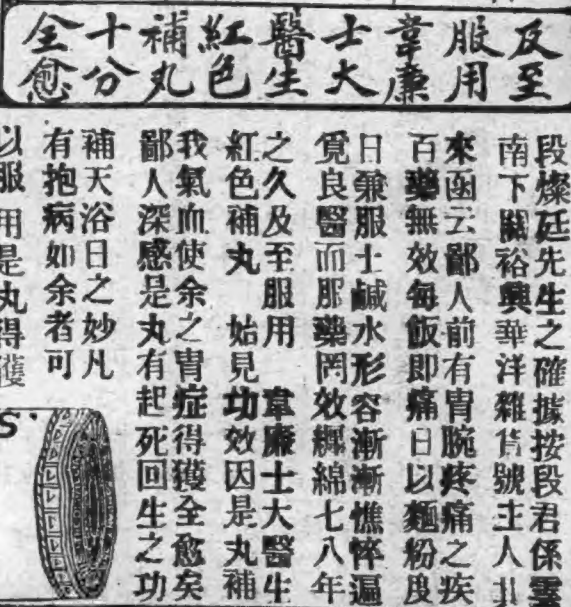 及至服用韋廉士大醫生紅色補丸十分全愈
段燦廷先生之確據按段君係雲
南下關裕興華洋雜貨號主人
來函云鄙人前有胃腕疼痛之疾
百藥無效每飯即痛日以麵粉度
日兼服士鹹水形容漸漸憔悴遍
覓良醫而服藥罔效纏綿七八年
之久及至服用 韋廉士大醫生
紅色補丸 始見功效因是丸補
我氣血使余之胃症得獲全愈矣
鄙人深感是丸有起死回生之功
補天浴日之妙凡
有抱病如余者可
以服用是丸得獲
S'